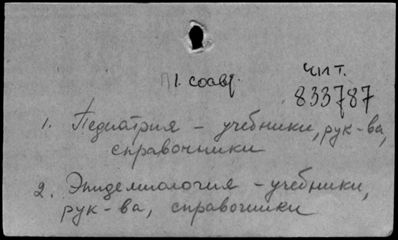 1. соавт.
чит.
833787
1. Педиатрия - учебники, рук-ва,
справочники
2. Эпидемиология - учебники,
рук-ва, справочники